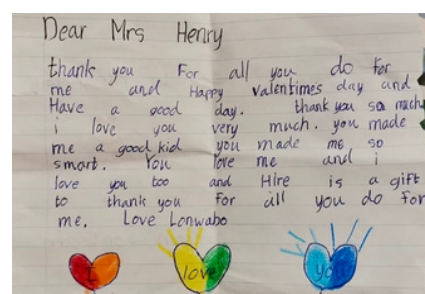 Dear Mrs Henry
thank you For all you do for
me and Happy Valentimes day and
Have a good day. thank you so much
i love you very much. you made
me a good kid you made me so
smart. You love me and i
love you too and Hire is a gift
to thank you for all you do for
me. Love Lonwabo
I love you